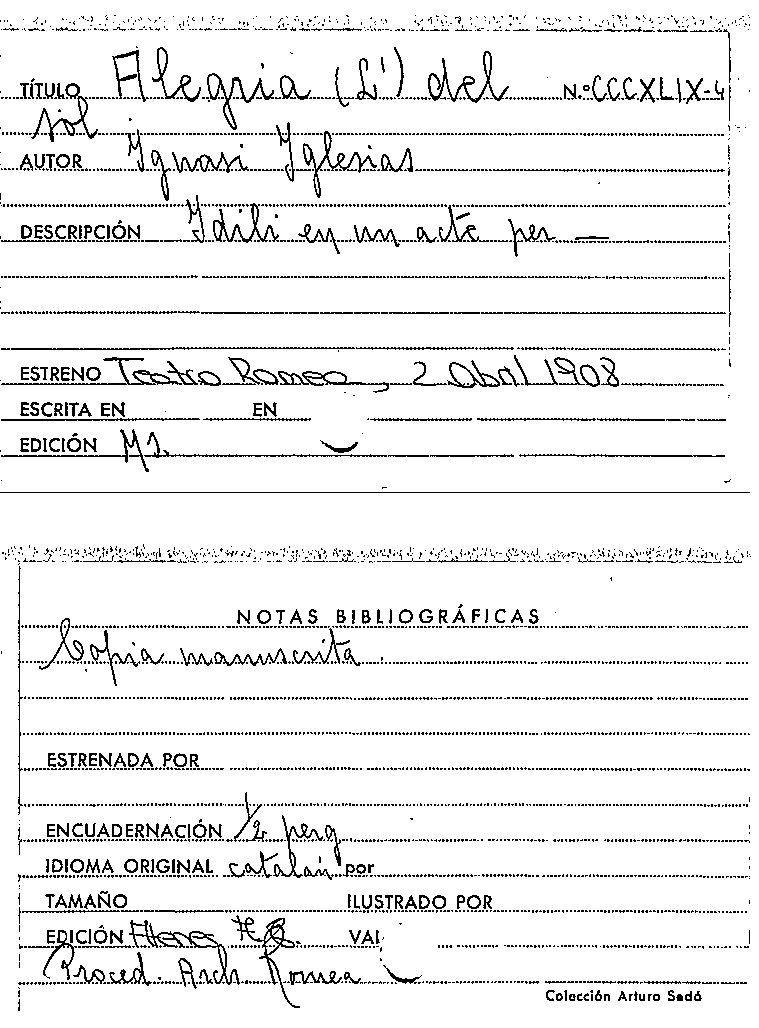 TÍTULO Alegria (L') del N.º CCCXLIX-4
sol
AUTOR Ignasi Iglesias
DESCRIPCIÓN Idili en un acte per —
ESTRENO Teatro Romea, 2 Abril 1908
ESCRITA EN EN
EDICIÓN Ms.
NOTAS BIBLIOGRÁFICAS
Copia manuscrita.
ESTRENADA POR
ENCUADERNACIÓN 1/2 perg
IDIOMA ORIGINAL catalán por
TAMAÑO ILUSTRADO POR
EDICIÓN VAL
Proced. Arch. Romea
Colección Arturo Sedó